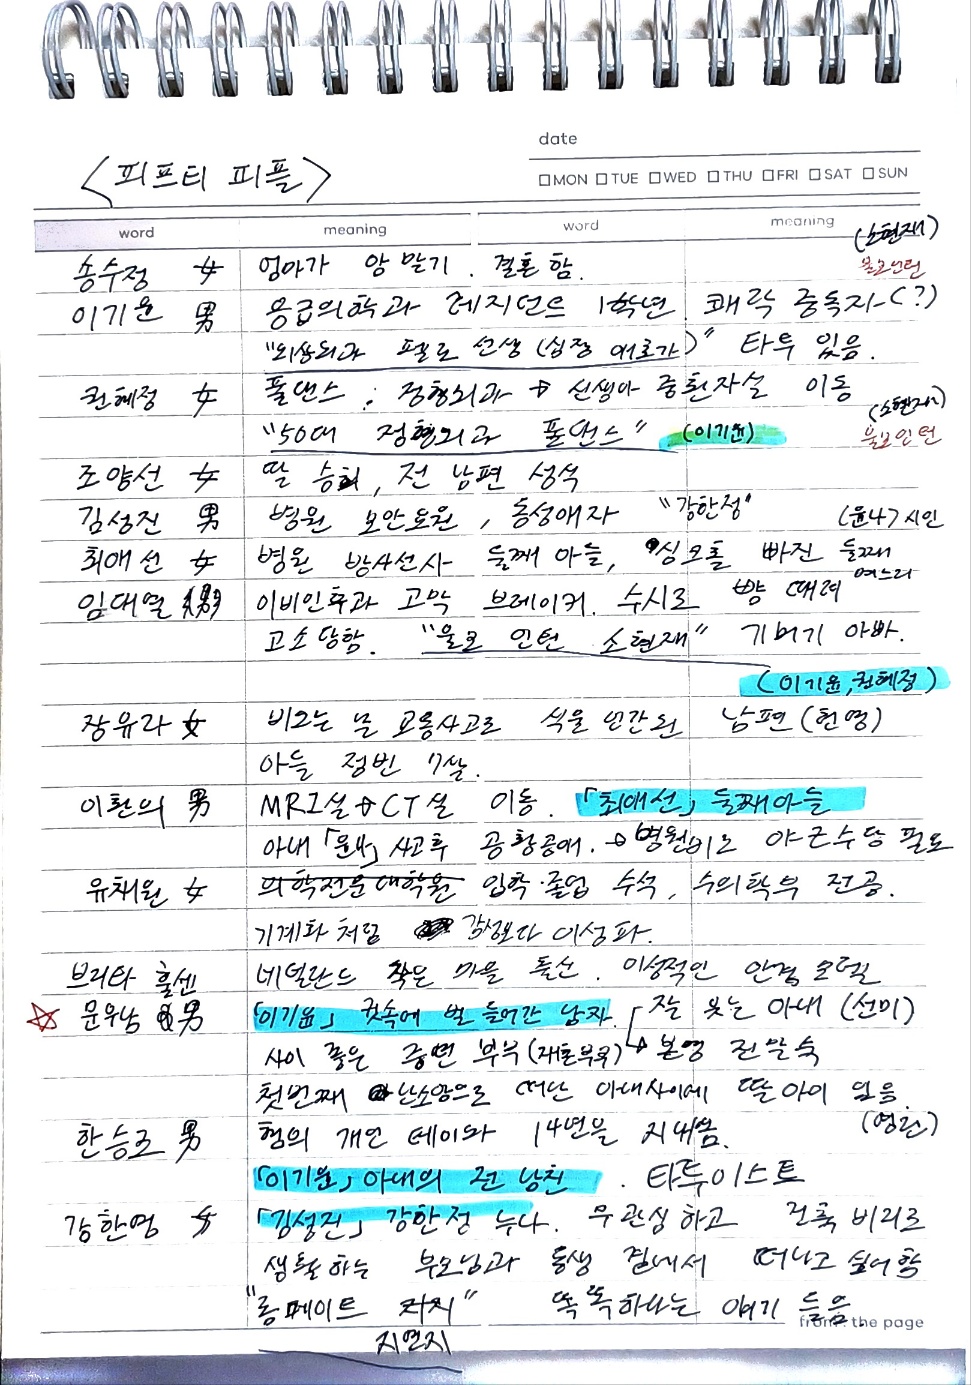 date
<피프티 피플>
□MON □TUE □WED □THU □FRI □SAT □SUN
word meaning word meaning
(소현재)
송수정 女 엄마가 암 말기. 결혼함.
이기윤 男 응급의학과 레지던트 1학년. 쾌락 중독자(?)
"외상외과 펠로 선생 (심장 애호가)" 타투 있음.
권혜정 女 폴댄스; 정형외과 → 신생아 중환자실 이동
(소현재)
"50대 정형외과 폴댄스" (이기윤) 울보인턴
조양선 女 딸 승희, 전 남편 성석
김성진 男 병원 보안요원, 동성애자 "강한정"
(윤나) 시인
최애선 女 병원 방사선사 둘째 아들, 싱크홀 빠진 둘째
며느리
임대열 男 이비인후과 고막 브레이커. 수시로 뺨 때려
고소당함. "울보 인턴 소현재" 기버기 아빠.
(이기윤, 권혜정)
장유라 女 비오는 날 교통사고로 식물 인간된 남편(헌영)
아들 정빈 7살.
이환의 男 MRI실→CT실 이동. 「최애선」 둘째아들
아내 「윤나」 사고 후 공황장애. → 병원비로 야근수당 필요
유채원 女 의학전문대학원 입학·졸업 수석, 수의학부 전공.
기계화처럼 감성보다 이성파.
브리타 훈센 네덜란드 작은 마을 출신. 이성적인 안경 모델
☆ 문우남 男 「이기윤」 귓속에 벌 들어간 남자. 잘 웃는 아내 (선미)
사이 좋은 중년 부부 (재혼부부) → 본명 진말숙
첫번째 난소암으로 떠난 아내사이에 딸 아이 있음.
(영린)
한승조 男 형의 개인 테이와 14년을 지내옴.
「이기윤」 아내의 전 남친. 타투이스트
강한영 女 「김성진」 강한정 누나. 무관심하고 건축 비리로
생활하는 부모님과 동생 곁에서 떠나고 싶어함
"룸메이트 지지" 똑똑하다는 얘기 들음
지연지
from the page